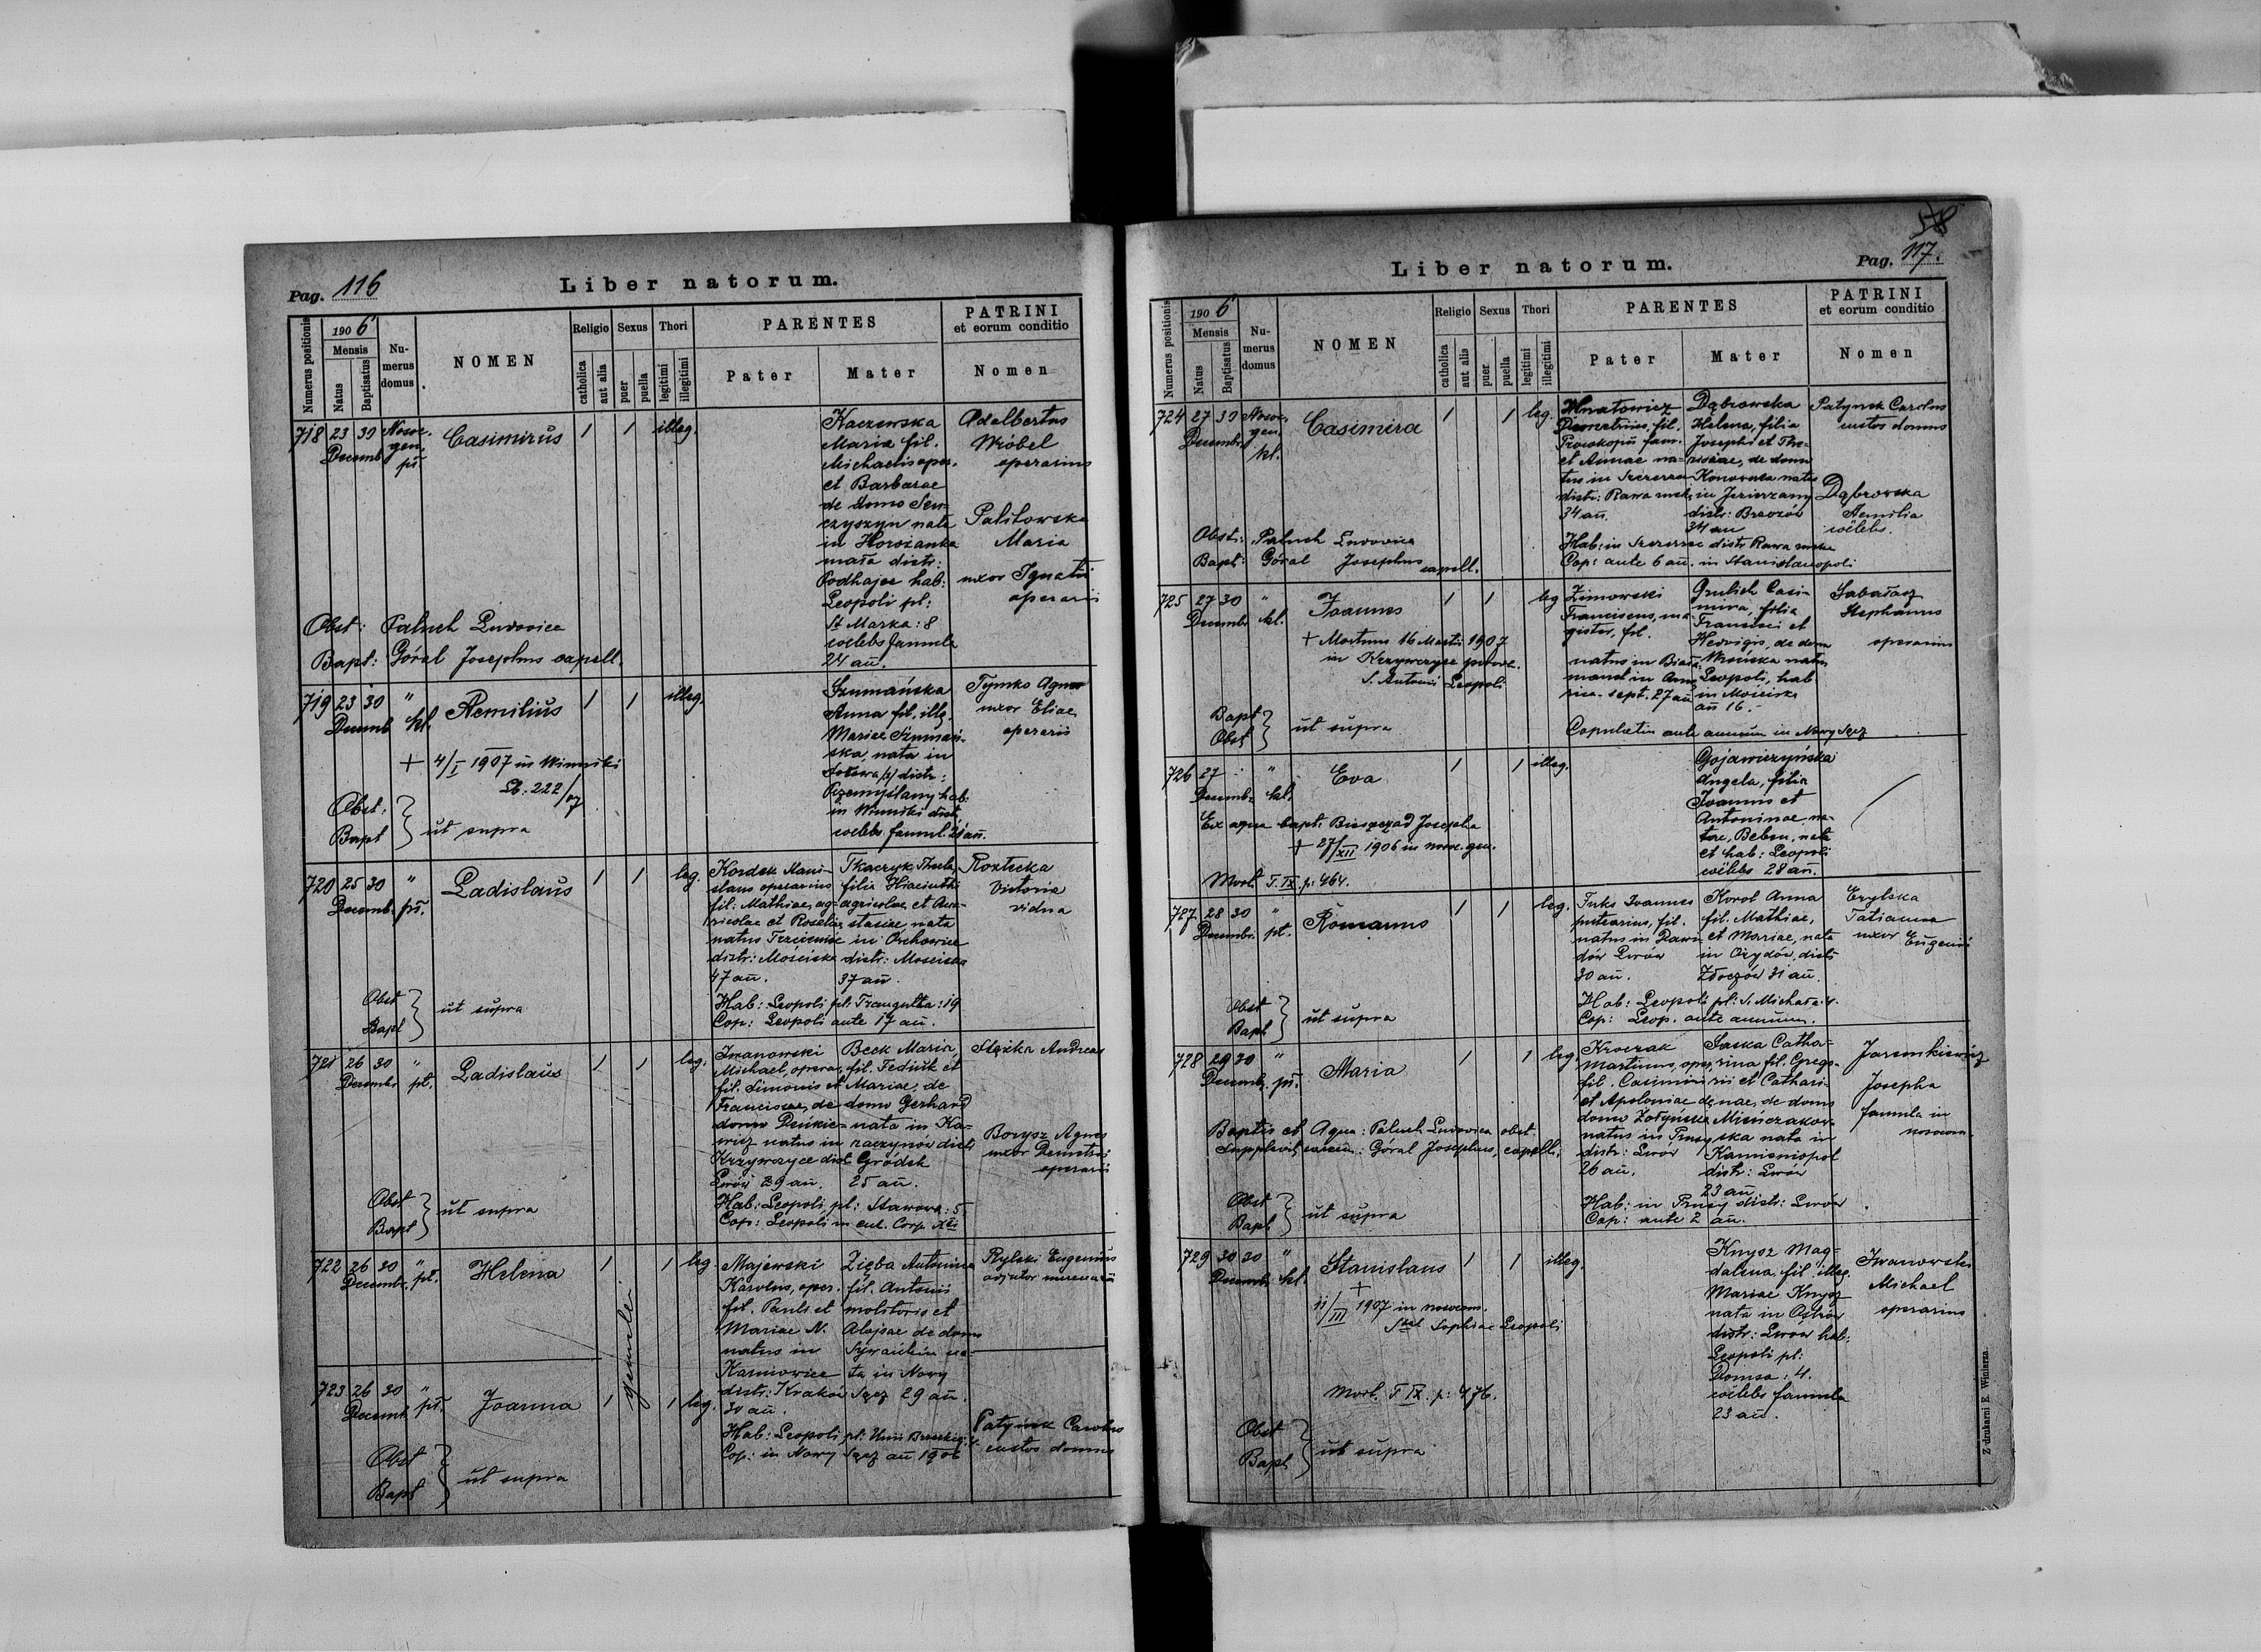 Pag. 116
Liber natorum.
Numerus positionis
1906
Mensis
Natus
Baptisatus
Nu-
merus
domus
NOMEN
Religio
catholica
aut alia
Sexus
puer
puella
Thori
legitimi
illegitimi
PARENTES
Pater
Mater
PATRINI
et eorum conditio
Nomen
718 23 30 Decemb.
Casimirus 1 1 illeg.
Kaczewska
Maria fil.
Michaelis oper.
et Barbarae
de domo Sen-
czyszyn nata
in Horożanka
mała distr:
Podhajce hab:
Leopoli pl:
St Marka: 8
coelebs famula
24 an̄.
Adalbertus
Wróbel
operarius
Maria
uxor Ignatii
operarii
Obst: Paluch Ludovica
Bapt: Góral Josephus capell.
719 23 30 " Decemb kl.
Aemilius 1 1 illeg.
+ 4/I 1907 in Winniki
L. 222/07
Szumańska
Anna fil. illg.
Mariae Szumań-
ska, nata in
distr:
Przemyślany hab:
in Winniki distr.
coelebs famul. 21 an̄.
Tymko Agnes
uxor Eliae
operarii
Obst:
Bapt } ut supra
720 25 30 " Decemb. pt.
Ladislaus 1 1 leg.
Kordek Stani-
slaus operarius
fil: Mathiae, ag-
ricolae et Rosaliae
natus Trzcieniec
distr: Mościska
47 an̄.
Tkaczyk Thecla,
filia Hiacinthi
agricolae et Ana-
stasiae, nata
in Orchowice
distr: Mościska
37 an̄.
Hab: Leopoli pl: Traugutta: 19
Cop: Leopoli ante 17 an̄.
Victoria
vidua
Obst
Bapt } ut supra
721 26 30 " Decembr pt.
Ladislaus 1 1 leg.
Iwanowski
Michael, operar,
fil. Simonis et
Franciscae, de
domo
natus in
Krzywczyce distr
Lwów 29 an̄.
Beck Maria
fil. Fediuk et
Mariae, de
domo Gerhard
nata in Ka-
raczynów distr
Gródek
25 an̄.
Hab: Leopoli pl: Stawowa: 5
Cop: Leopoli in eccl. Corp. Xti
Andreas
Borysz Agnes
uxor Demetrii
operarii
Obst
Bapt } ut supra
722 26 30 " Decembr. pt.
Helena 1 1 leg.
gemelli
Majewski
Karolus, oper.
fil. Pauli et
Mariae N.
natus in
Kamiowice
distr: Kraków
30 an̄.
Zięba Antonina
fil. Antonii
molitoris et
Alojsae de domo
na-
ta in Nowy
Sącz 29 an̄.
Hab: Leopoli pl: Unii Brzeskiej
Cop: in Nowy Sącz an̄ 1906
Rylski Eugenius
723 26 30 " Decemb pt.
Joanna 1 1 leg.
Patynek Carolus
custos domus
Obst
Bapt } ut supra
Pag. 117.
Liber natorum.
Numerus positionis
1906
Mensis
Natus
Baptisatus
Nu-
merus
domus
NOMEN
Religio
catholica
aut alia
Sexus
puer
puella
Thori
legitimi
illegitimi
PARENTES
Pater
Mater
PATRINI
et eorum conditio
Nomen
724 27 30 Decembr. kl.
Casimira 1 1 leg.
Hnatowicz
Demetrius, fil.
Procopii fam.
et Annae na-
tus in
distr: Rawa rusk.
34 an̄.
Dąbrowska
Helena, filia
Josephi et Tho-
de domo
nata
in Jezierzany
distr:
34 an
Hab: in distr Rawa ruska
Cop: ante 6 an̄. in Stanislaopoli
Patynek Carolus
custos domus
Dąbrowska
Aemilia
coelebs.
Obst: Paluch Ludovica
Bapt: Góral Josephus capell.
725 27 30 " Decembr kl.
Joannes 1 1 leg
+ Mortuus 16 Martii 1907
in Krzywczyce
S. Antonii Leopoli
Zimowski
Franciscus, ma-
gister, fil.
natus in
27 an̄
Grulich Casi-
mira, filia
Francisci et
Hedvigis, de domo
nata
Leopoli, hab
in Mościska
an̄ 16.
Copulatin ante annum in Nowy Sącz
Stephanus
operarius
Bapt
Obst } ut supra
726 27 " Decembr kl.
Eva 1 1 illeg.
Ex aqua bapt. Josepha
+ 27/XII 1906 in noso. gen.
Mort. T. IX p: 464.
Gojawiczyńska
Angela, filia
Joannis et
Antoninae, na-
tae, nata
et hab: Leopoli
coelebs 28 an̄.
727 28 30 " Decembr. pt.
Romanus 1 1 leg.
Turks Joannes
fil.
natus in
Lwów
30 an̄.
Korol Anna
fil. Mathiae,
et Mariae, nata
in Ożydów, distr
Złoczów 31 an̄.
Hab: Leopoli pl: S. Michała: 4.
Cop: Leop. ante annum.
Tatianna
uxor Eugenii
Obst
Bapt } ut supra
728 29 30 " Decemb. pt.
Maria 1 1 leg.
Kroczak
Martinus, oper,
fil. Casimiri
et Apoloniae de
domo Zołyńska
natus in Prusy
distr: Lwów
26 an̄.
Saska Catha-
rina fil. Grego-
rii et Cathari-
nae, de domo
nata in
Kamieniopol
distr: Lwów
23 an̄
Hab: in Prusy distr: Lwów
Cop: ante 2 an̄.
Josepha
famula in
Aqua: Paluch Ludovica obst.
Supplevit : Góral Josephus, capell.
Obst
Bapt } ut supra
729 30 30 " Decemb. kl.
Stanislaus 1 1 illeg.
+
11/III 1907 in nosocom.
Sophiae Leopoli
Mort. T IX. p: 476.
Knysz Mag-
dalena, fil. illeg.
Mariae Knysz
nata in Ostrów
distr: Lwów hab:
Leopoli pl:
Domsa: 4.
coelebs famula
23 an̄.
Iwanowski
Michael
operarius
Obst
Bapt } ut supra
Z drukarni E. Winiarza.